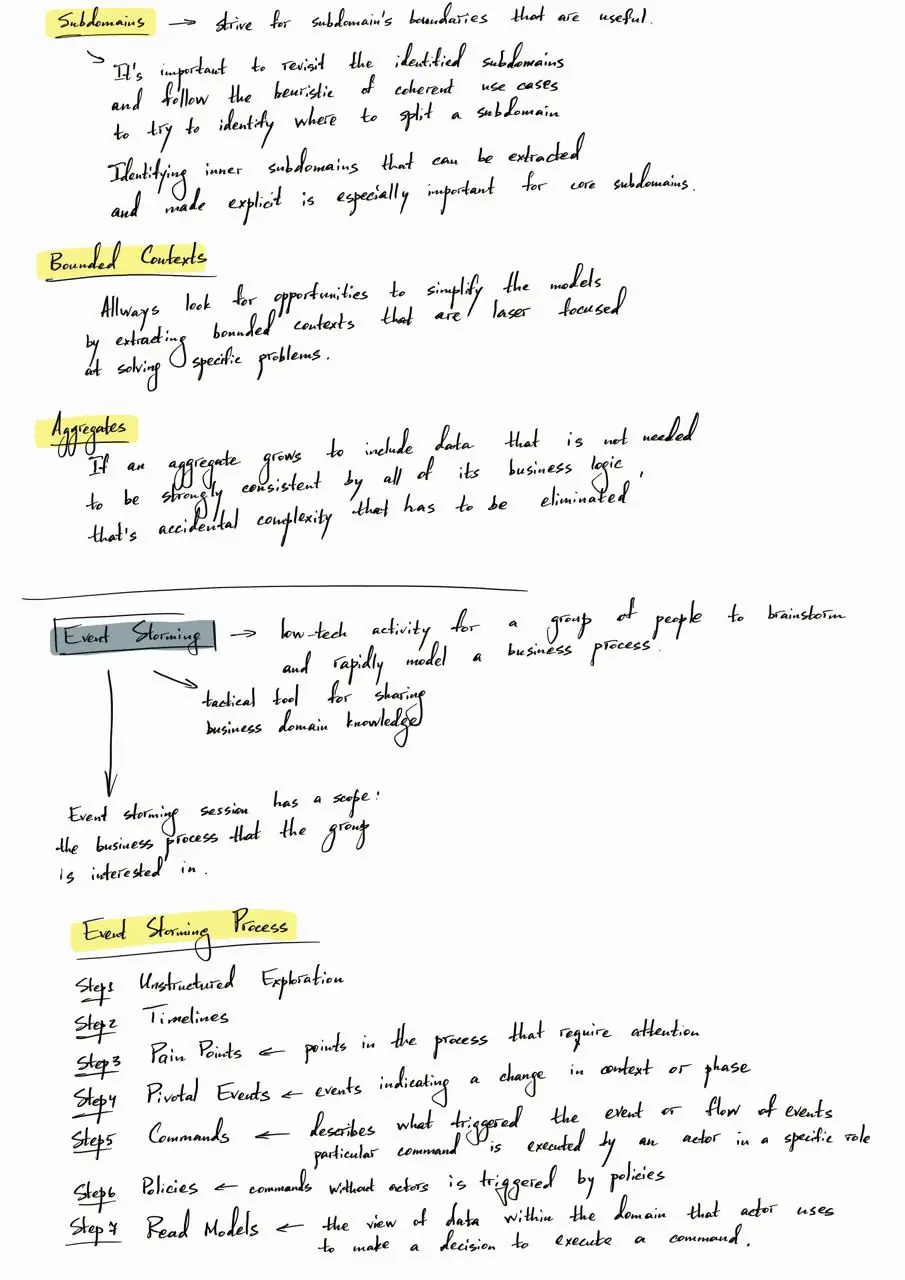 Subdomains → strive for subdomain's boundaries that are useful.
It's important to revisit the identified subdomains
and follow the heuristic of coherent use cases
to try to identify where to split a subdomain
Identifying inner subdomains that can be extracted
and made explicit is especially important for core subdomains.
Bounded Contexts
Allways look for opportunities to simplify the models
by extracting bounded contexts that are laser focused
at solving specific problems.
Aggregates
If an aggregate grows to include data that is not needed
to be strongly consistent by all of its business logic,
that's accidental complexity that has to be eliminated
Event Storming → low-tech activity for a group of people to brainstorm
and rapidly model a business process.
tactical tool for sharing
business domain knowledge
Event storming session has a scope:
the business process that the group
is interested in.
Event Storming Process
Step1 Unstructured Exploration
Step2 Timelines
Step3 Pain Points ← points in the process that require attention
Step4 Pivotal Events ← events indicating a change in context or phase
Step5 Commands ← describes what triggered the event or flow of events
particular command is executed by an actor in a specific role
Step6 Policies ← commands without actors is triggered by policies
Step7 Read Models ← the view of data within the domain that actor uses
to make a decision to execute a command.